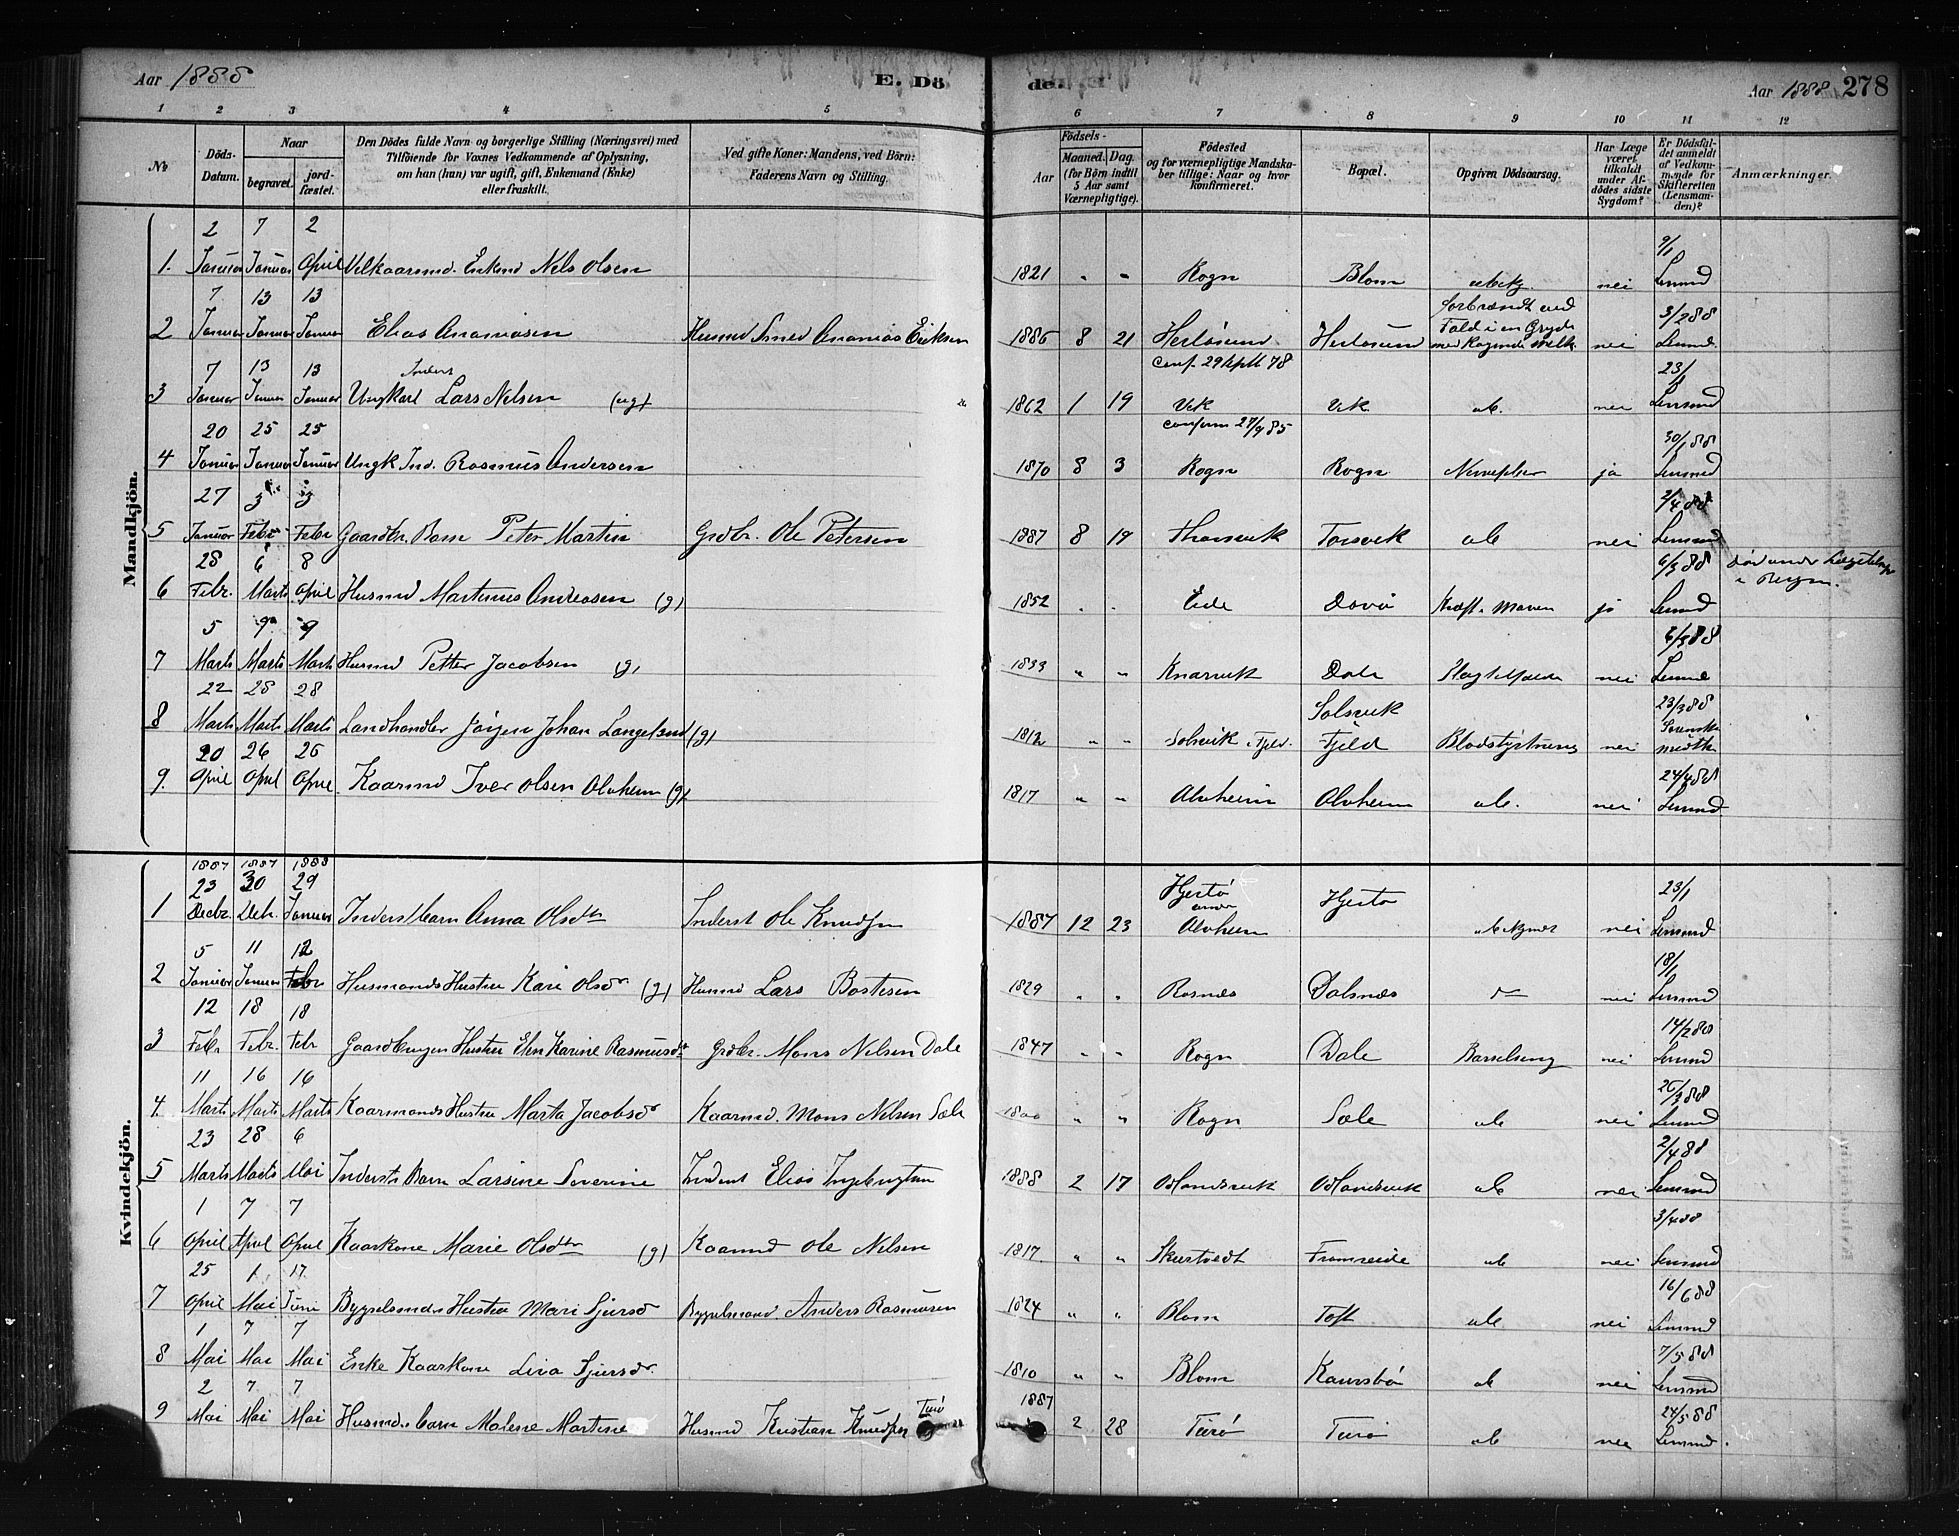 Aar 1888
E. Dö
de.
Aar 1888 278
1 2 3 4 5 6 7 8 9 10 11 12
No
Döds-Datum.
Naar
begravet.
jordfæstet.
Den Dödes fulde Navn og borgerlige Stilling (Næringsvei) med
Tilföiende for Voxnes Vedkommende af Oplysning,
om han (hun) var ugift, gift, Enkemand (Enke)
eller fraskilt.
Ved gifte Koner: Mandens, ved Börn:
Faderens Navn og Stilling.
Födsels-
Aar
Maaned. Dag.
(for Börn indtil
5 Aar samt
Værnepligtige).
Födested
og for værnepligtige Mandskaber tillige: Naar og hvor
konfirmeret.
Bopæl.
Opgiven Dödsaarsag.
Har Læge
været
tilkaldt
under Afdödes sidste
Sygdom?
Er Dödsfaldet anmeldt
af Vedkommende for
Skifteretten
(Lensmanden)?
Anmærkninger.
Mandkjön.
2 7 2 9/1
1. Januar Januar April Velkaarmd. Enkemd Nels Olsen 1821 " " Rogn Blom ubekj. nei Lensmd
7 13 13 forbrændt ved 3/2 88
2 Januar Januar Januar Elias Ananiasen Husmd Smed Ananias Eriksen 1886 8 21 Herløsund Herløsund Fald i en Gryde med kogende Melk nei Lensmd
7 13 13 Inderst conf. 29 Sept 78 23/1
3 Januar Januar Januar Ungkarl Lars Nelsen (ug) 1862 1 19 Vik Vik ub. nei Lensmd
20 25 25 confirm 27/9 85 30/1 88
4 Januar Januar Januar Ungk Ind. Rasmus Andersen 1870 8 3 Rogn Rogn ja Lensmd
27 3 3 2/4 88
5 Januar Febr Febr Gaardbr. Barn Peter Martin Grdbr. Ole Petersen 1887 8 19 Thorsvik Torsvik ub nei Lensmd
28 6 8 6/3 88 Død under
6 Febr. Marts April Husmd Martinus Andreasen (g) 1852 " " Eide Davø Kræft i Maven ja Lensmd
5 9 9 6/3 88
7 Marts Marts Marts Husmd Petter Jacobsen (g) 1833 " " Knarvik Dale nei Lensmd
22 28 28 Solsvik 23/3 88
8 Marts Marts Marts Landhandler Jørgen Johan Langelsund (g) 1812 " " Solsvik i Fjeld. Fjeld Blodstyrtning nei
20 26 26 24/4 88
9. April April April Kaarmd Iver Olsen Alvheim (g) 1817 " " Alvheim Alvheim ub. nei Lensmd
Kvindekjön.
1887 1887 1888
23 30 29 Hjertø 23/1
1 Decbr. Debr. Januar Inderst barn Anna Olsdtr Inderst Ole Knudsen 1887 12 23 under Alvheim Hjertø nei Lensmd
5 11 12 18/1
2 Januar Januar Febr Husmands Hustru Kari Olsdr (g) Husmd Lars Bostesen 1829 " " Rosnes Dalsnes nei Lensmd
12 18 18 14/2 88
3 Febr Febr. Febr Gaardbrugers Hustru Elen Karine Rasmusdr Grdbr. Mons Nelsen Dale 1847 " " Rogn Dale Barselseng nei Lensmd
11 16 16 26/3 88
4. Marts Marts Marts Kaarmands Hustru Marta Jacobsdr Kaarmd. Mons Nelsen Sæle " " Rogn Sæle ub nei Lensmd
23 28 6 2/4 88
5 Marts Marts Mai Inderst Barn Larsine Severine Inderst Elias Ingebrigtsen 1888 2 17 Odlandsvik Odlandsvik ub nei Lensmd
1 7 7 3/4 88
6 April April April Kaarkone Marie Olsdtr (g) Kaarmd Ole Nelsen 1817 " " Skurtvedt Framreide ub nei Lensmd
25 1 17 16/6 88
7 April Mai Juni Bygselmds Hustru Mari Sjursd Bygselmand. Anders Rasmusen 1824 " " Blom Toft ub nei Lensmd
1 7 7 7/5 88
8 Mai Mai Mai Enke Kaarkone Liva Sjursdr 1810 " " Blom ub nei Lensmd
2 7 7 Turø 1887 24/5 88
9 Mai Mai Mai Husmds barn Malene Martine Husmd Kristian Knudsen 2 28 Turø Turø ub nei Lensmd.